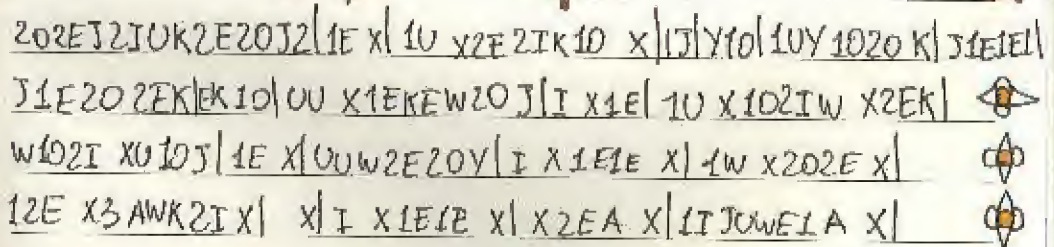 202EJ2IUK2E20J2|1E X|1U X2E2IK10 X|IJ|Y10|1UY1020K|J1E1E1|
J1E202EK|EK10|UU X1EKEW20J|I X1E|1U X102IW X2EK|
W102I XU10J|1E X|UUW2E20Y|I X1E1E X|1W X202E X|
12E X3AWK2I X| X|I X1E1E X|X2EA X|1IJUWE1A X|